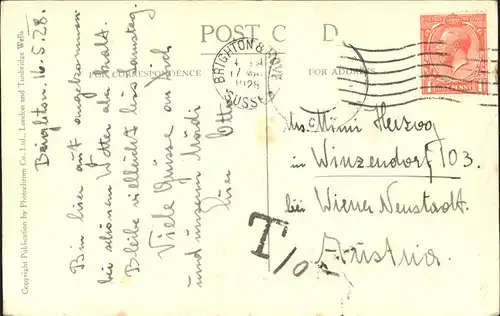 POST CARD
FOR CORRESPONDENCE
FOR ADDRESS
BRIGHTON & HO
17 MAY
1928
SUSSEX
ONE PENNY
Copyright Publication by Photochrom Co., Ltd., London and Tunbridge Wells
Brighton. 16.5.28.
Bin hier gut angekommen
bei schönem Wetter
Bleibe vielleicht bis Samstag.
Viele Grüsse an Dich
und unsern Mädi
Otto
Mrs. Mimi Herzog
in Winzendorf 103.
bei Wiener Neustadt.
Austria.
T/o